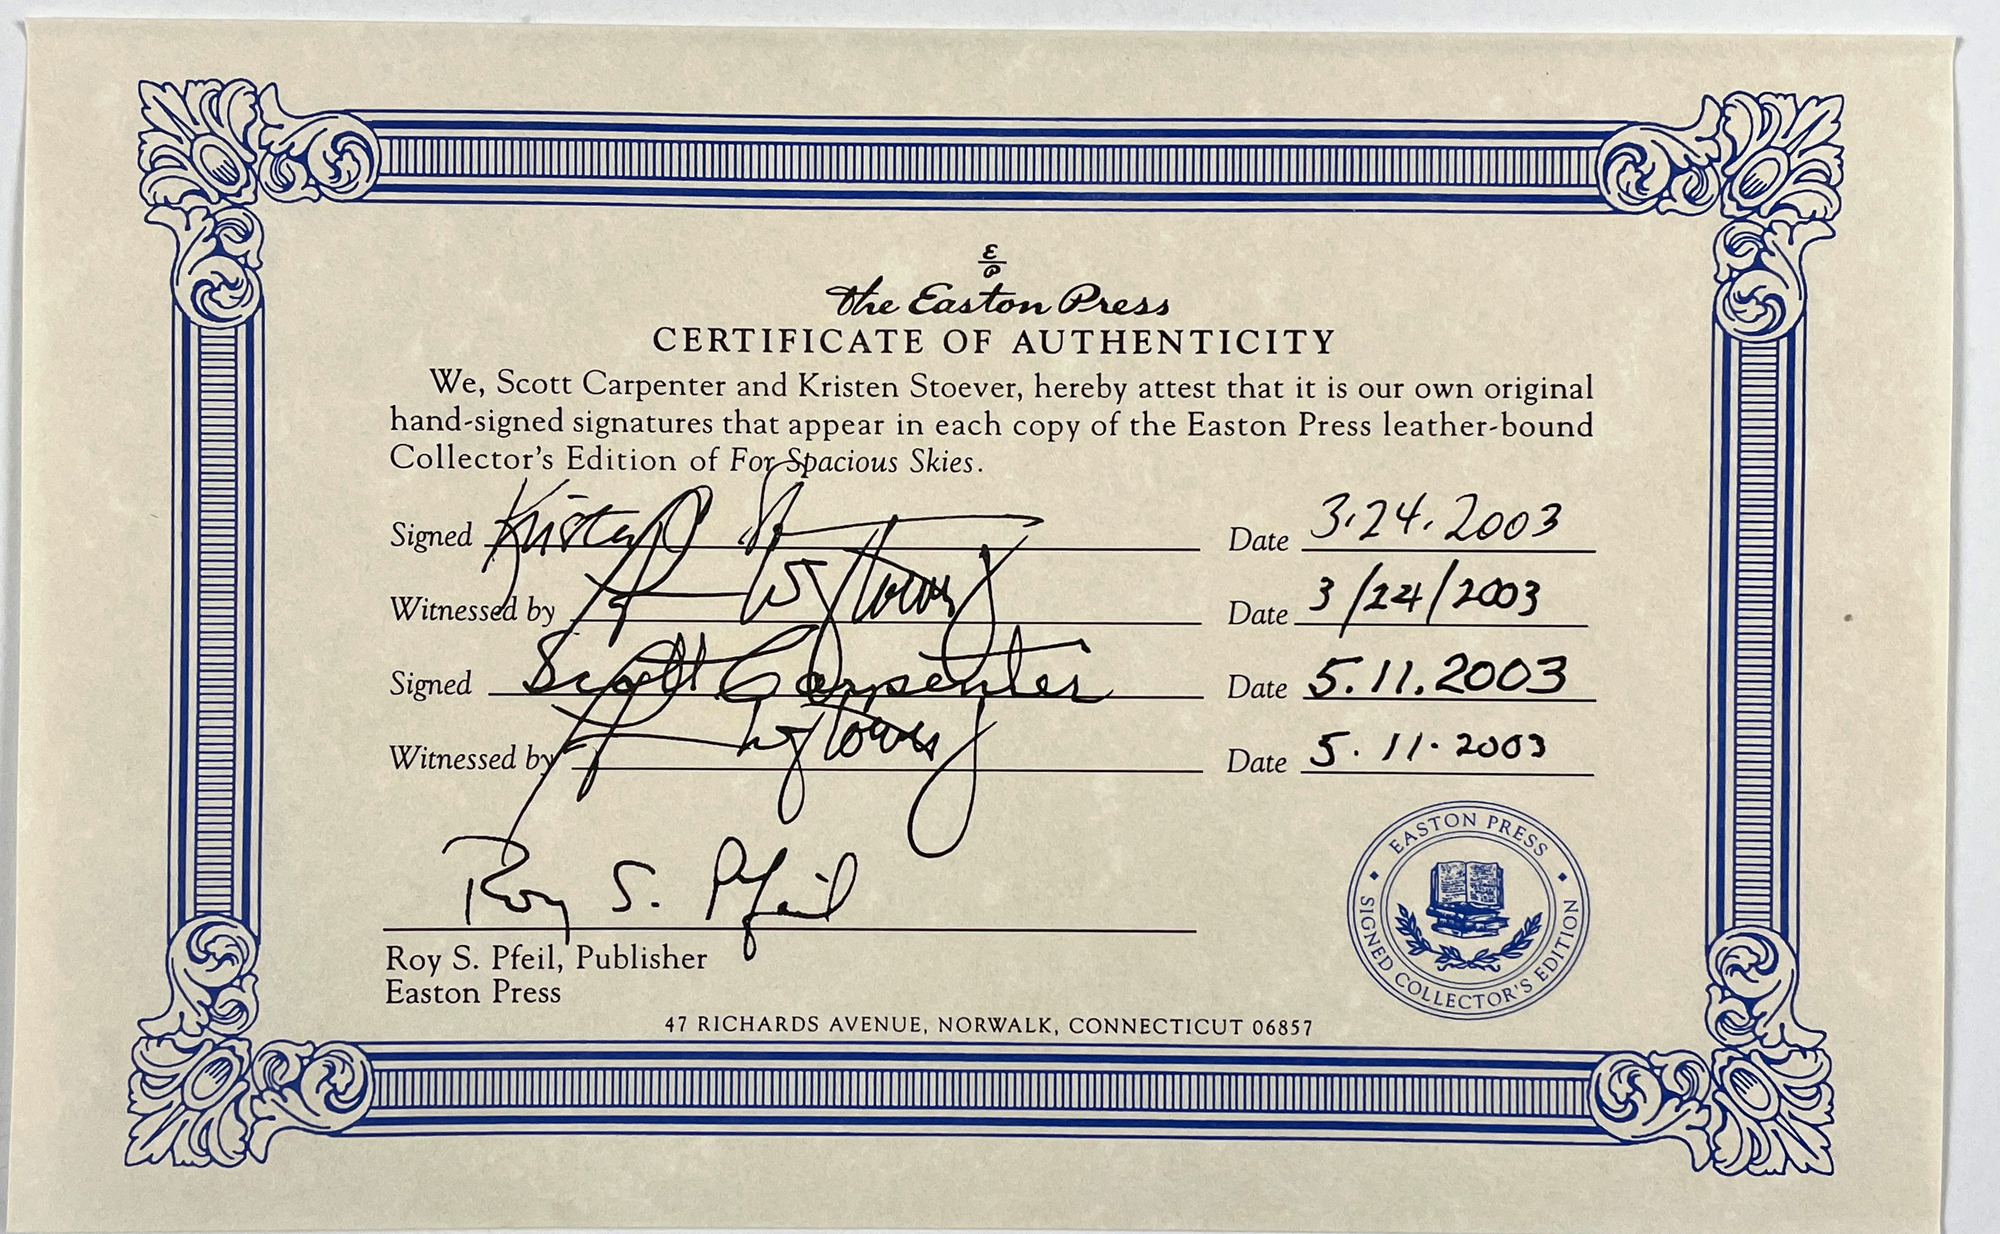 E
P
The Easton Press
CERTIFICATE OF AUTHENTICITY
We, Scott Carpenter and Kristen Stoever, hereby attest that it is our own original
hand-signed signatures that appear in each copy of the Easton Press leather-bound
Collector's Edition of For Spacious Skies.
Signed Date 3.24.2003
Witnessed by Date 3/24/2003
Signed Scott Carpenter Date 5.11.2003
Witnessed by Date 5.11.2003
Roy S. Pfeil
Roy S. Pfeil, Publisher
Easton Press
EASTON PRESS
SIGNED COLLECTOR'S EDITION
47 RICHARDS AVENUE, NORWALK, CONNECTICUT 06857